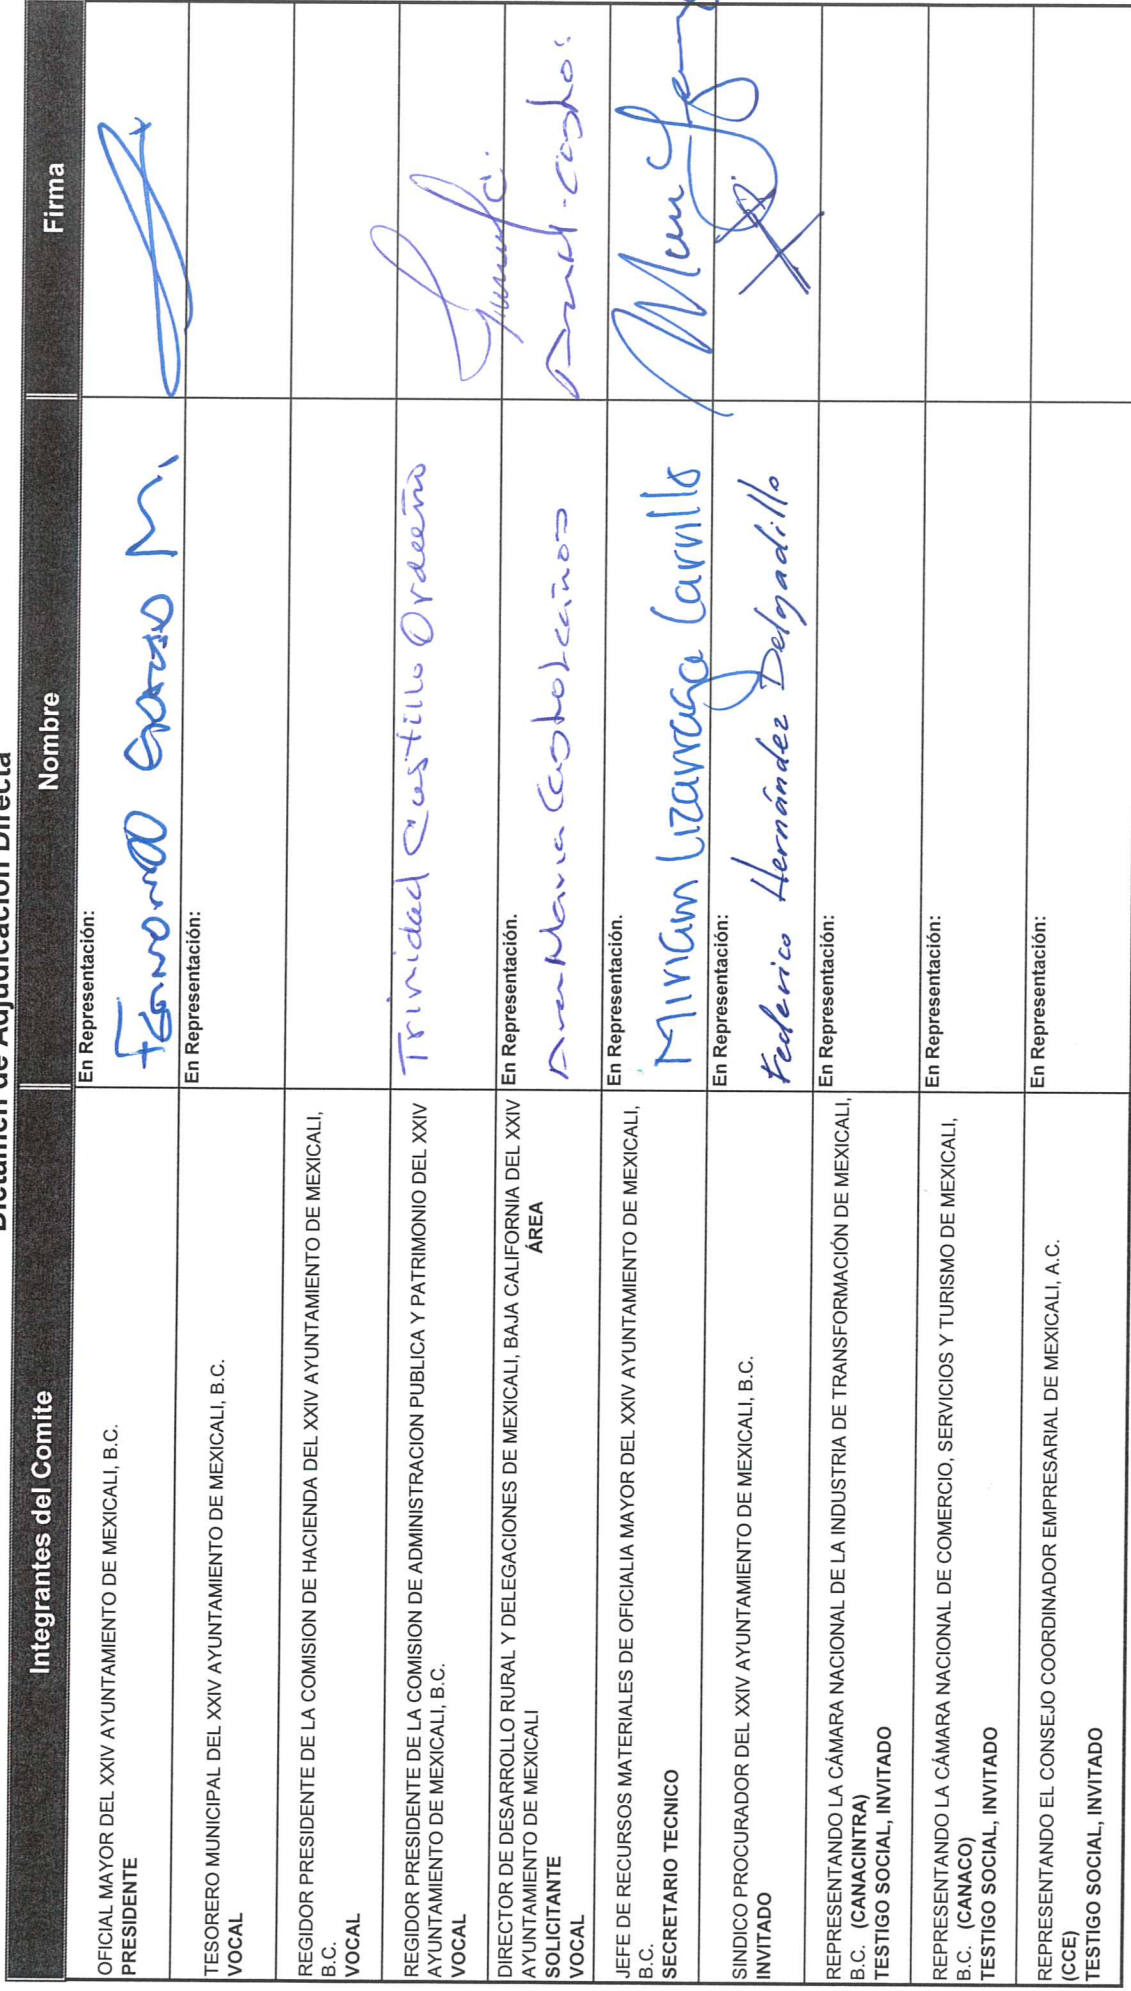 Dictamen de Adjudicación Directa
Integrantes del Comite
Nombre
Firma
OFICIAL MAYOR DEL XXIV AYUNTAMIENTO DE MEXICALI, B.C.
PRESIDENTE
En Representación:
Fernando M.
TESORERO MUNICIPAL DEL XXIV AYUNTAMIENTO DE MEXICALI, B.C.
VOCAL
En Representación:
REGIDOR PRESIDENTE DE LA COMISION DE HACIENDA DEL XXIV AYUNTAMIENTO DE MEXICALI,
B.C.
VOCAL
REGIDOR PRESIDENTE DE LA COMISION DE ADMINISTRACION PUBLICA Y PATRIMONIO DEL XXIV
AYUNTAMIENTO DE MEXICALI, B.C.
VOCAL
Trinidad Castillo Ordeeño
DIRECTOR DE DESARROLLO RURAL Y DELEGACIONES DE MEXICALI, BAJA CALIFORNIA DEL XXIV
AYUNTAMIENTO DE MEXICALI ÁREA
SOLICITANTE
VOCAL
En Representación.
Ana Maria Castro
JEFE DE RECURSOS MATERIALES DE OFICIALIA MAYOR DEL XXIV AYUNTAMIENTO DE MEXICALI,
B.C.
SECRETARIO TECNICO
En Representación.
Miriam Lizarraga Carrillo
SINDICO PROCURADOR DEL XXIV AYUNTAMIENTO DE MEXICALI, B.C.
INVITADO
En Representación:
Federico Hernández Delgadillo
REPRESENTANDO LA CÁMARA NACIONAL DE LA INDUSTRIA DE TRANSFORMACIÓN DE MEXICALI,
B.C. (CANACINTRA)
TESTIGO SOCIAL, INVITADO
En Representación:
REPRESENTANDO LA CÁMARA NACIONAL DE COMERCIO, SERVICIOS Y TURISMO DE MEXICALI,
B.C. (CANACO)
TESTIGO SOCIAL, INVITADO
En Representación:
REPRESENTANDO EL CONSEJO COORDINADOR EMPRESARIAL DE MEXICALI, A.C.
(CCE)
TESTIGO SOCIAL, INVITADO
En Representación: